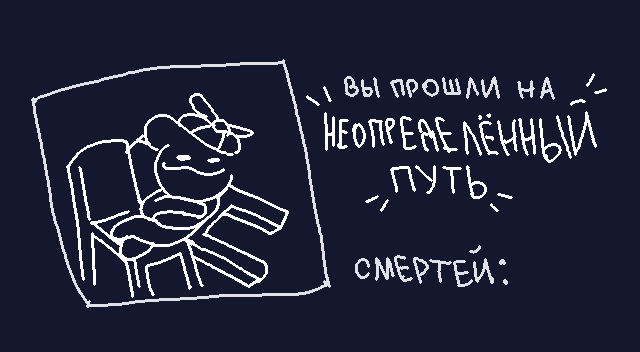 ВЫ ПРОШЛИ НА
НЕОПРЕДЕЛЁННЫЙ
ПУТЬ
СМЕРТЕЙ: